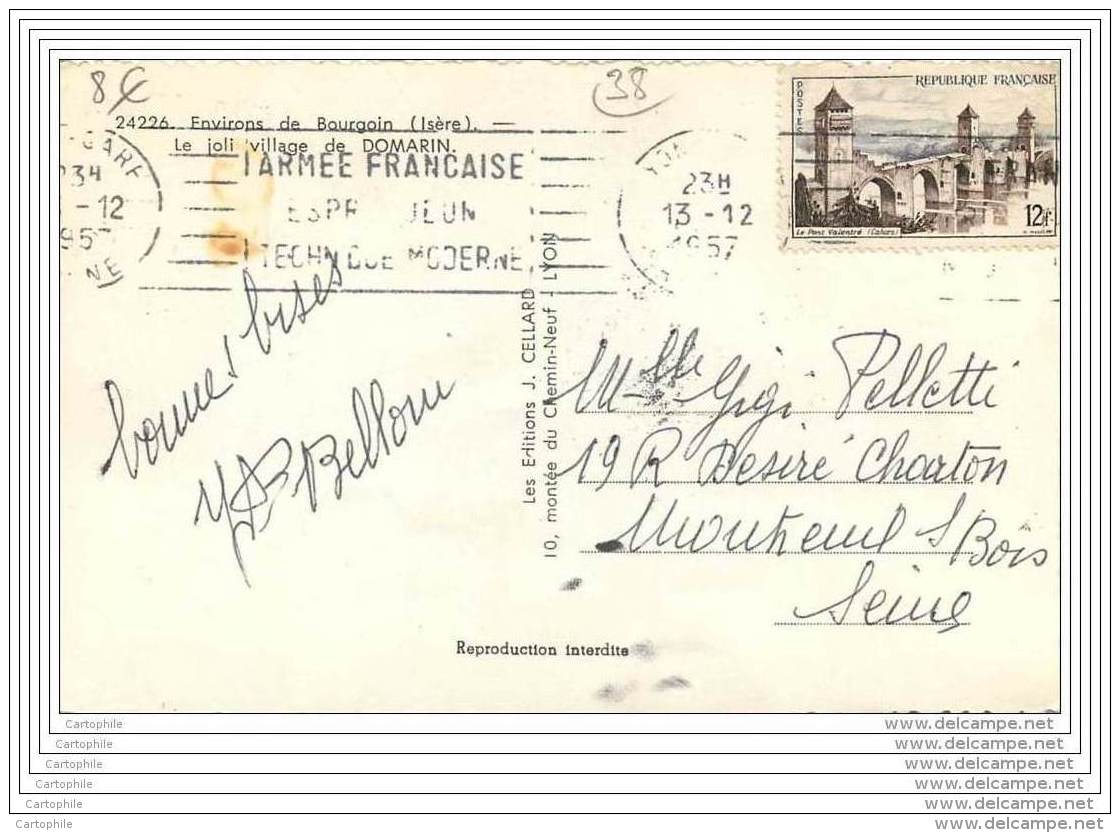 8€
38
24226. Environs de Bourgoin (Isère). —
Le joli village de DOMARIN.
GARE
23H
-12
1957
NE
L'ARMÉE FRANCAISE
ESPR JEUN
TECHN QUE MODERNE
23H
13-12
1957
REPUBLIQUE FRANÇAISE
POSTES
12f.
Le Pont Valentré (Cahors)
bonnes bises
Bellom
Les Editions J. CELLARD
10, montée du Chemin-Neuf - LYON
Mlle Gigi Pelletti
19 R Desiré Charton
Montreuil s/Bois
Seine
Reproduction interdite
Cartophile
www.delcampe.net
Cartophile
www.delcampe.net
Cartophile
www.delcampe.net
Cartophile
www.delcampe.net
Cartophile
www.delcampe.net
Cartophile
www.delcampe.net